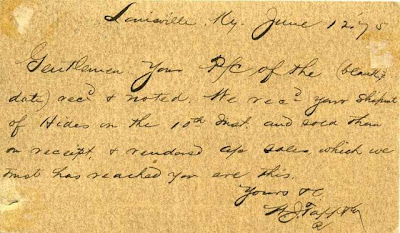 Louisville, Ky. June 12 '75
Gentlemen Your P/C of the (blank
date) recd & noted. We recd your Shipmt
of Hides on the 10th Inst. and sold them
on receipt, & rendered a/c sales which we
trust has reached you ere this.
Yours &c